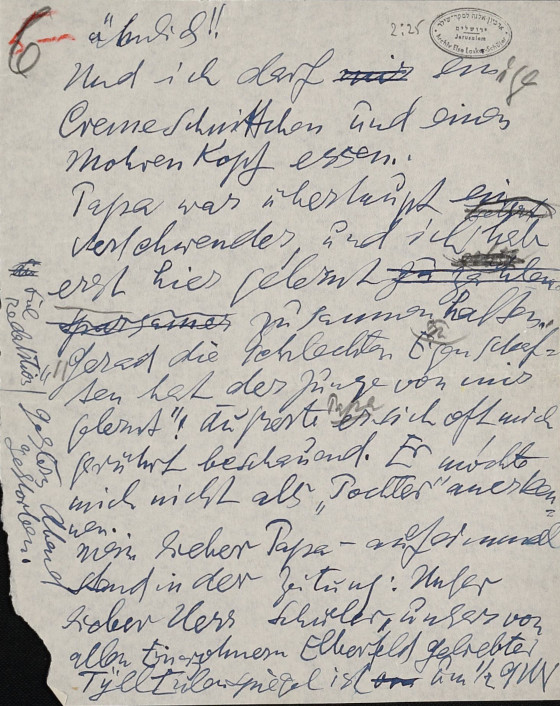 6
2:25
ארכיון אלזה לסקר-שילר
ירושלים
Jerusalem
Archiv Else Lasker-Schüler
ähnlich!!
Und ich darf mir einige
Cremeschnittchen und einen
Mohrenkopf essen..
Papa war überhaupt ein
Verschwender, und ich hab
erst hier gelernt
sparsamer zusammenhalten.
"Gerad die schlechten Eigenschaf-
ten hat der Junge von mir
gelernt"! äußerte Papa er sich oft mich
gerührt beschauend. Er möchte
mich nicht als „Tochter" anerken-
nen.
Mein lieber Papa – auf einmal
stand in der Zeitung: Unser
lieber Herr Schüler, unser von
allen Einwohnern Elberfeld geliebter
Tyll Eulenspiegel ist um ½ 9 Uhr
gestern Abend
gestorben.
die
redaktion